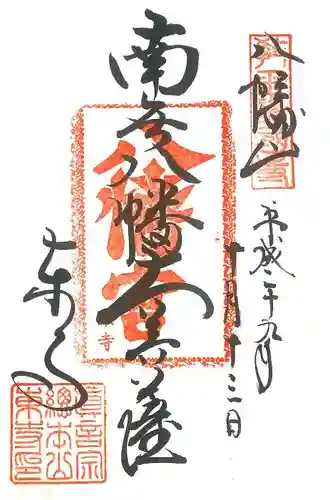 八幡山
平成
十月十三日
南無八幡大菩薩
八幡宮
寺
東寺
真言宗
總本山
東寺印